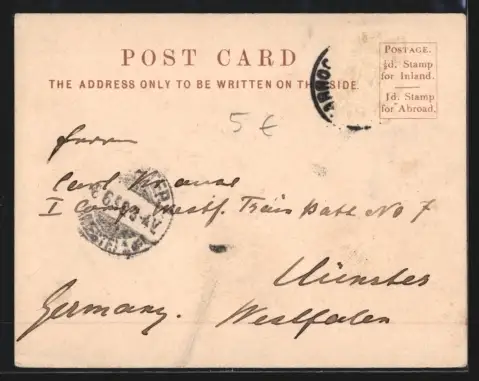 POST CARD
THE ADDRESS ONLY TO BE WRITTEN ON THE SIDE.
POSTAGE.
½d. Stamp
for Inland.
1d. Stamp
for Abroad.
5 €
Herrn
Carl
I Comp. Westf. Train Batt No 7
Münster
Germany. Westfalen